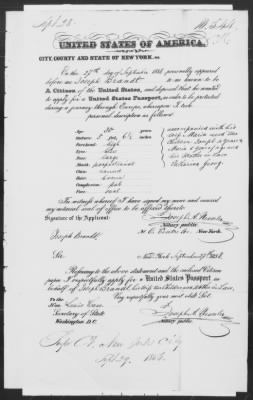 Sept 28.
UNITED STATES OF AMERICA,
CITY, COUNTY AND STATE OF NEW YORK, ss.
On the 27th day of September 1868 personally appeared
before me Joseph Brandt to me known to be
A Citizen of the United States, and deposed that he wanted
to apply for a United States Passport, in order to be protected
during a journey through Europe, whereupon I took
personal description as follows
Age 30 years
Stature 5 feet 6½ inches
Forehead high
Eyes
Nose large
Mouth proportioned
Chin round
Hair
Complexion
Face oval
accompanied with his
wife Maria and two
children Joseph 4 years
Maria 2 years of age and
his Mother in law
In witness whereof I have signed my name and caused
my notarial seal of office to be affixed hereto.
Signature of the Applicant:
Notary public
Joseph Brandt
New-York.
Sir.
New-York September 27th 1868.
Referring to the above statement and the enclosed Citizen
paper I respectfully apply for United States Passport on
behalf of Joseph Brandt, his wife two Children and Mother in Law.
Very respectfully your most obdt Svt.
To the
Hon.
Secretary of State
Washington D.C.
Notary public.
New York City
Sept 29. 1868.